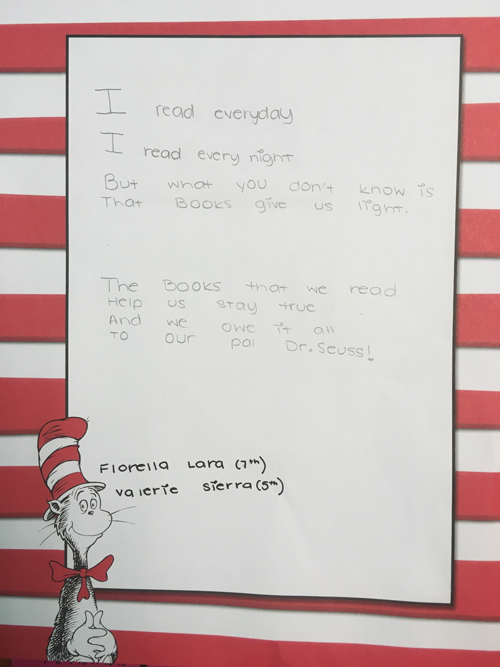 I read everyday
I read every night
But what you don't know is
That Books give us light.
The Books that we read
Help us stay true
And we owe it all
To our pal Dr. Seuss!
Fiorella Lara (7th)
Valerie Sierra (5th)